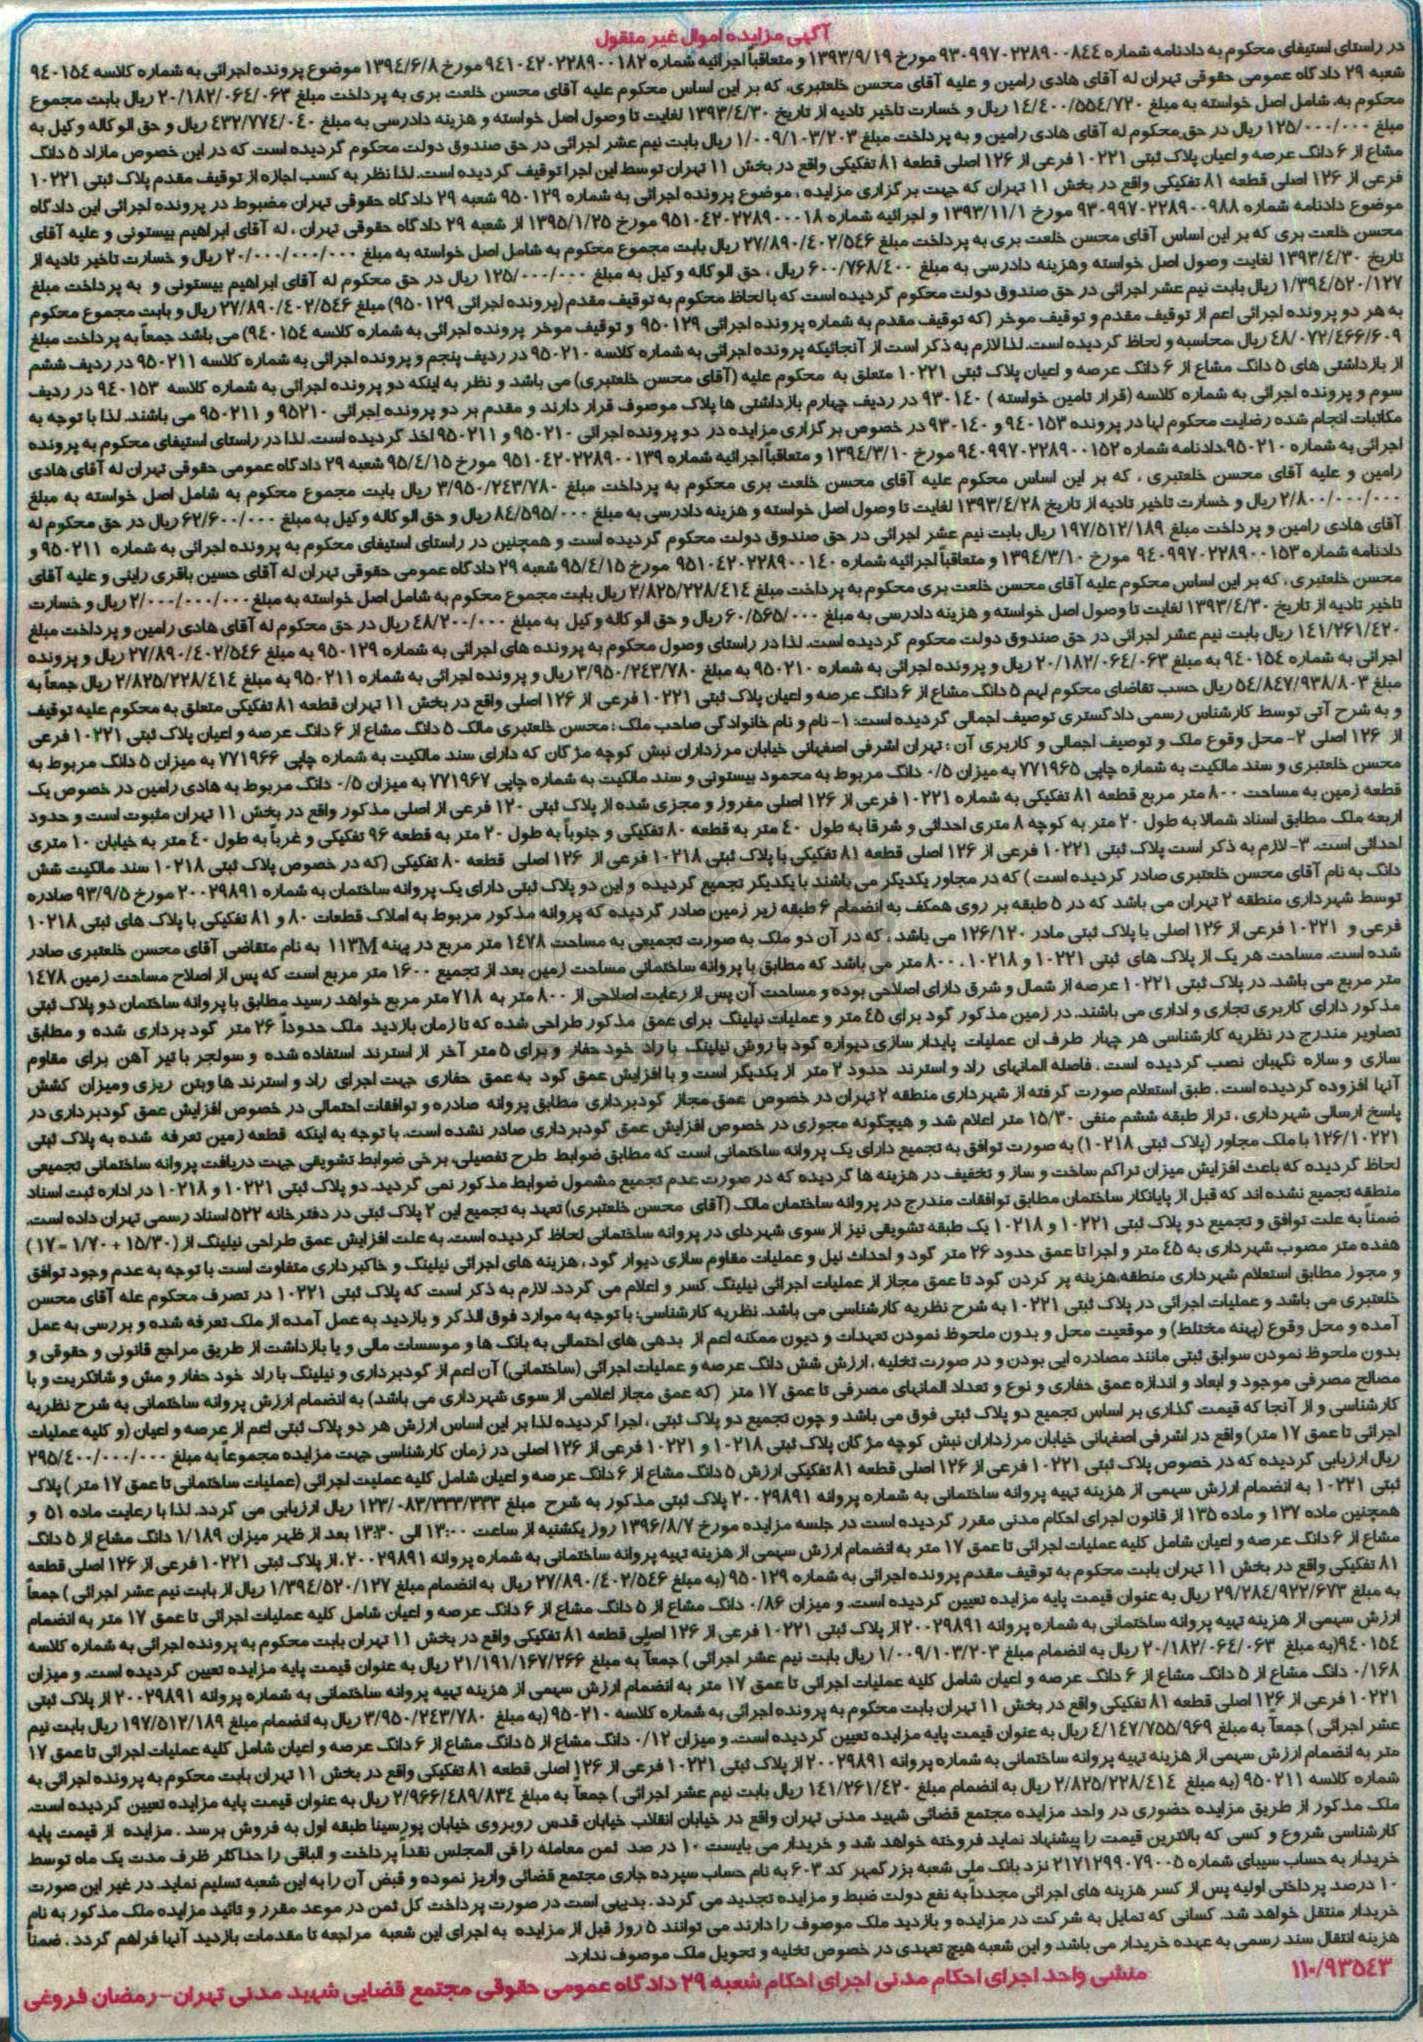 آگهی مزایده اموال غیر منقول
در راستای استیفای محکوم به دادنامه شماره ۹۳۰۹۹۷۰۲۲۸۹۰۰۸۴۴ مورخ ۱۳۹۳/۹/۱۹ و متعاقباً اجرائیه شماره ۹۴۱۰۴۲۰۲۲۸۹۰۰۱۸۲ مورخ ۱۳۹۴/۶/۸ موضوع پرونده اجرائی به شماره کلاسه ۹۴۰۱۵۴
شعبه ۲۹ دادگاه عمومی حقوقی تهران له آقای هادی رامین و علیه آقای محسن خلعتبری، که بر این اساس محکوم علیه آقای محسن خلعت بری به پرداخت مبلغ ۲۰/۱۸۲/۰۶۴/۰۶۳ ریال بابت مجموع
محکوم به، شامل اصل خواسته به مبلغ ۱۴/۴۰۰/۵۵۴/۷۲۰ ریال و خسارت تاخیر تادیه از تاریخ ۱۳۹۳/۴/۳۰ لغایت تا وصول اصل خواسته و هزینه دادرسی به مبلغ ۴۳۲/۷۷۴/۰۴۰ ریال و حق الوکاله وکیل به
مبلغ ۱۲۵/۰۰۰/۰۰۰ ریال در حق محکوم له آقای هادی رامین و به پرداخت مبلغ ۱/۰۰۹/۱۰۳/۲۰۳ ریال بابت نیم عشر اجرائی در حق صندوق دولت محکوم گردیده است که در این خصوص مازاد ۵ دانگ
مشاع از ۶ دانگ عرصه و اعیان پلاک ثبتی ۱۰۲۲۱ فرعی از ۱۲۶ اصلی قطعه ۸۱ تفکیکی واقع در بخش ۱۱ تهران توسط این اجرا توقیف گردیده است. لذا نظر به کسب اجازه از توقیف مقدم پلاک ثبتی ۱۰۲۲۱
فرعی از ۱۲۶ اصلی قطعه ۸۱ تفکیکی واقع در بخش ۱۱ تهران که جهت برگزاری مزایده، موضوع پرونده اجرائی به شماره ۹۵۰۱۲۹ شعبه ۲۹ دادگاه حقوقی تهران مضبوط در پرونده اجرائی این دادگاه
موضوع دادنامه شماره ۹۳۰۹۹۷۰۲۲۸۹۰۰۹۸۸ مورخ ۱۳۹۳/۱۱/۱ و اجرائیه شماره ۹۵۱۰۴۲۰۲۲۸۹۰۰۰۱۸ مورخ ۱۳۹۵/۱/۲۵ از شعبه ۲۹ دادگاه حقوقی تهران، له آقای ابراهیم بیستونی و علیه آقای
محسن خلعت بری که بر این اساس آقای محسن خلعت بری به پرداخت مبلغ ۲۷/۸۹۰/۴۰۲/۵۴۶ ریال بابت مجموع محکوم به شامل اصل خواسته به مبلغ ۲۰/۰۰۰/۰۰۰/۰۰۰ ریال و خسارت تاخیر تادیه از
تاریخ ۱۳۹۳/۴/۳۰ لغایت وصول اصل خواسته وهزینه دادرسی به مبلغ ۶۰۰/۷۶۸/۴۰۰ ریال، حق الوکاله وکیل به مبلغ ۱۲۵/۰۰۰/۰۰۰ ریال در حق محکوم له آقای ابراهیم بیستونی و به پرداخت مبلغ
۱/۳۹۴/۵۲۰/۱۲۷ ریال بابت نیم عشر اجرائی در حق صندوق دولت محکوم گردیده است که با لحاظ محکوم به توقیف مقدم (پرونده اجرائی ۹۵۰۱۲۹) مبلغ ۲۷/۸۹۰/۴۰۲/۵۴۶ ریال و بابت مجموع محکوم
به هر دو پرونده اجرائی اعم از توقیف مقدم و توقیف موخر (که توقیف مقدم به شماره پرونده اجرائی ۹۵۰۱۲۹ و توقیف موخر پرونده اجرائی به شماره کلاسه ۹۴۰۱۵۴) می باشد جمعاً به پرداخت مبلغ
۴۸/۰۷۲/۴۶۶/۶۰۹ ریال محاسبه و لحاظ گردیده است. لذا لازم به ذکر است از آنجائیکه پرونده اجرائی به شماره کلاسه ۹۵۰۲۱۰ در ردیف پنجم و پرونده اجرائی به شماره کلاسه ۹۵۰۲۱۱ در ردیف ششم
از بازداشتی های ۵ دانگ مشاع از ۶ دانگ عرصه و اعیان پلاک ثبتی ۱۰۲۲۱ متعلق به محکوم علیه (آقای محسن خلعتبری) می باشد و نظر به اینکه دو پرونده اجرائی به شماره کلاسه ۹۴۰۱۵۳ در ردیف
سوم و پرونده اجرائی به شماره کلاسه (قرار تامین خواسته) ۹۳۰۱۴۰ در ردیف چهارم بازداشتی ها پلاک موصوف قرار دارند و مقدم بر دو پرونده اجرائی ۹۵۲۱۰ و ۹۵۰۲۱۱ می باشند. لذا با توجه به
مکاتبات انجام شده رضایت محکوم لها در پرونده ۹۴۰۱۵۳ و ۹۳۰۱۴۰ در خصوص برگزاری مزایده در دو پرونده اجرائی ۹۵۰۲۱۰ و ۹۵۰۲۱۱ اخذ گردیده است. لذا در راستای استیفای محکوم به پرونده
اجرائی به شماره ۹۵۰۲۱۰،دادنامه شماره ۹۴۰۹۹۷۰۲۲۸۹۰۰۱۵۲ مورخ ۱۳۹۴/۳/۱۰ و متعاقباً اجرائیه شماره ۹۵۱۰۴۲۰۲۲۸۹۰۰۱۳۹ مورخ ۹۵/۴/۱۵ شعبه ۲۹ دادگاه عمومی حقوقی تهران له آقای هادی
رامین و علیه آقای محسن خلعتبری، که بر این اساس محکوم علیه آقای محسن خلعت بری محکوم به پرداخت مبلغ ۳/۹۵۰/۲۴۳/۷۸۰ ریال بابت مجموع محکوم به شامل اصل خواسته به مبلغ
۲/۸۰۰/۰۰۰/۰۰۰ ریال و خسارت تاخیر تادیه از تاریخ ۱۳۹۳/۴/۲۸ لغایت تا وصول اصل خواسته و هزینه دادرسی به مبلغ ۸۴/۵۹۵/۰۰۰ ریال و حق الوکاله وکیل به مبلغ ۶۲/۶۰۰/۰۰۰ ریال در حق محکوم له
آقای هادی رامین و پرداخت مبلغ ۱۹۷/۵۱۲/۱۸۹ ریال بابت نیم عشر اجرائی در حق صندوق دولت محکوم گردیده است و همچنین در راستای استیفای محکوم به پرونده اجرائی به شماره ۹۵۰۲۱۱ و
دادنامه شماره ۹۴۰۹۹۷۰۲۲۸۹۰۰۱۵۳ مورخ ۱۳۹۴/۳/۱۰ و متعاقباً اجرائیه شماره ۹۵۱۰۴۲۰۲۲۸۹۰۰۱۴۰ مورخ ۹۵/۴/۱۵ شعبه ۲۹ دادگاه عمومی حقوقی تهران له آقای حسین باقری رابنی و علیه آقای
محسن خلعتبری، که بر این اساس محکوم علیه آقای محسن خلعت بری محکوم به پرداخت مبلغ ۲/۸۲۵/۲۲۸/۴۱۴ ریال بابت مجموع محکوم به شامل اصل خواسته به مبلغ ۲/۰۰۰/۰۰۰/۰۰۰ ریال و خسارت
تاخیر تادیه از تاریخ ۱۳۹۳/۴/۳۰ لغایت تا وصول اصل خواسته و هزینه دادرسی به مبلغ ۶۰/۵۶۵/۰۰۰ ریال و حق الوکاله وکیل به مبلغ ۴۸/۲۰۰/۰۰۰ ریال در حق محکوم له آقای هادی رامین و پرداخت مبلغ
۱۴۱/۲۶۱/۴۲۰ ریال بابت نیم عشر اجرائی در حق صندوق دولت محکوم گردیده است. لذا در راستای وصول محکوم به پرونده های اجرائی به شماره ۹۵۰۱۲۹ به مبلغ ۲۷/۸۹۰/۴۰۲/۵۴۶ ریال و پرونده
اجرائی به شماره ۹۴۰۱۵۴ به مبلغ ۲۰/۱۸۲/۰۶۴/۰۶۳ ریال و پرونده اجرائی به شماره ۹۵۰۲۱۰ به مبلغ ۳/۹۵۰/۲۴۳/۷۸۰ ریال و پرونده اجرائی به شماره ۹۵۰۲۱۱ به مبلغ ۲/۸۲۵/۲۲۸/۴۱۴ ریال جمعاً به
مبلغ ۵۴/۸۴۷/۹۳۸/۸۰۳ ریال حسب تقاضای محکوم لهم ۵ دانگ مشاع از ۶ دانگ عرصه و اعیان پلاک ثبتی ۱۰۲۲۱ فرعی از ۱۲۶ اصلی واقع در بخش ۱۱ تهران قطعه ۸۱ تفکیکی متعلق به محکوم علیه توقیف
و به شرح آتی توسط کارشناس رسمی دادگستری توصیف اجمالی گردیده است: ۱- نام و نام خانوادگی صاحب ملک : محسن خلعتبری مالک ۵ دانگ مشاع از ۶ دانگ عرصه و اعیان پلاک ثبتی ۱۰۲۲۱ فرعی
از ۱۲۶ اصلی ۲- محل وقوع ملک و توصیف اجمالی و کاربری آن : تهران اشرفی اصفهانی خیابان مرزداران نبش کوچه مژگان که دارای سند مالکیت به شماره چاپی ۷۷۱۹۶۶ به میزان ۵ دانگ مربوط به
محسن خلعتبری و سند مالکیت به شماره چاپی ۷۷۱۹۶۵ به میزان ۰/۵ دانگ مربوط به محمود بیستونی و سند مالکیت به شماره چاپی ۷۷۱۹۶۷ به میزان ۰/۵ دانگ مربوط به هادی رامین در خصوص یک
قطعه زمین به مساحت ۸۰۰ متر مربع قطعه ۸۱ تفکیکی به شماره ۱۰۲۲۱ فرعی از ۱۲۶ اصلی مفروز و مجزی شده از پلاک ثبتی ۱۲۰ فرعی از اصلی مذکور واقع در بخش ۱۱ تهران مثبوت است و حدود
اربعه ملک مطابق اسناد شمالا به طول ۲۰ متر به کوچه ۸ متری احداثی و شرقا به طول ۴۰ متر به قطعه ۸۰ تفکیکی و جنوباً به طول ۲۰ متر به قطعه ۹۶ تفکیکی و غرباً به طول ۴۰ متر به خیابان ۱۰ متری
احداثی است. ۳- لازم به ذکر است پلاک ثبتی ۱۰۲۲۱ فرعی از ۱۲۶ اصلی قطعه ۸۱ تفکیکی با پلاک ثبتی ۱۰۲۱۸ فرعی از ۱۲۶ اصلی قطعه ۸۰ تفکیکی (که در خصوص پلاک ثبتی ۱۰۲۱۸ سند مالکیت شش
دانگ به نام آقای محسن خلعتبری صادر گردیده است) که در مجاور یکدیگر می باشند با یکدیگر تجمیع گردیده و این دو پلاک ثبتی دارای یک پروانه ساختمان به شماره ۲۰۰۲۹۸۹۱ مورخ ۹۳/۹/۵ صادره
توسط شهرداری منطقه ۲ تهران می باشد که در ۵ طبقه بر روی همکف به انضمام ۶ طبقه زیر زمین صادر گردیده که پروانه مذکور مربوط به املاک قطعات ۸۰ و ۸۱ تفکیکی با پلاک های ثبتی ۱۰۲۱۸
فرعی و ۱۰۲۲۱ فرعی از ۱۲۶ اصلی با پلاک ثبتی مادر ۱۲۶/۱۲۰ می باشد، که در آن دو ملک به صورت تجمیعی به مساحت ۱۴۷۸ متر مربع در پهنه ۱۱۳M به نام متقاضی آقای محسن خلعتبری صادر
شده است. مساحت هر یک از پلاک های ثبتی ۱۰۲۲۱ و ۱۰۲۱۸، ۸۰۰ متر می باشد که مطابق با پروانه ساختمانی مساحت زمین بعد از تجمیع ۱۶۰۰ متر مربع است که پس از اصلاح مساحت زمین ۱۴۷۸
متر مربع می باشد. در پلاک ثبتی ۱۰۲۲۱ عرصه از شمال و شرق دارای اصلاحی بوده و مساحت آن پس از رعایت اصلاحی از ۸۰۰ متر به ۷۱۸ متر مربع خواهد رسید مطابق با پروانه ساختمان دو پلاک ثبتی
مذکور دارای کاربری تجاری و اداری می باشند. در زمین مذکور گود برای ۴۵ متر و عملیات نیلینگ برای عمق مذکور طراحی شده که تا زمان بازدید ملک حدوداً ۲۶ متر گود برداری شده و مطابق
تصاویر مندرج در نظریه کارشناسی هر چهار طرف ان عملیات پایدار سازی دیواره گود با روش نیلینگ با راد خود حفار و برای ۵ متر آخر از استرند استفاده شده و سولجر با تیر آهن برای مقاوم
سازی و سازه نگهبان نصب گردیده است. فاصله المانهای راد و استرند حدود ۲ متر از یکدیگر است و با افزایش عمق گود به عمق حفاری جهت اجرای راد و استرند ها وبتن ریزی ومیزان کشش
آنها افزوده گردیده است. طبق استعلام صورت گرفته از شهرداری منطقه ۲ تهران در خصوص عمق مجاز گودبرداری مطابق پروانه صادره و توافقات احتمالی در خصوص افزایش عمق گودبرداری در
پاسخ ارسالی شهرداری، تراز طبقه ششم منفی ۱۵/۳۰ متر اعلام شد و هیچگونه مجوزی در خصوص افزایش عمق گودبرداری صادر نشده است. با توجه به اینکه قطعه زمین تعرفه شده به پلاک ثبتی
۱۲۶/۱۰۲۲۱ با ملک مجاور (پلاک ثبتی ۱۰۲۱۸) به صورت توافق به تجمیع دارای یک پروانه ساختمانی است که مطابق ضوابط طرح تفصیلی، برخی ضوابط تشویقی جهت دریافت پروانه ساختمانی تجمیعی
لحاظ گردیده که باعث افزایش میزان تراکم ساخت و ساز و تخفیف در هزینه ها گردیده که در صورت عدم تجمیع مشمول ضوابط مذکور نمی گردید. دو پلاک ثبتی ۱۰۲۲۱ و ۱۰۲۱۸ در اداره ثبت اسناد
منطقه تجمیع نشده اند که قبل از پایانکار ساختمان مطابق توافقات مندرج در پروانه ساختمان مالک (آقای محسن خلعتبری) تعهد به تجمیع این ۲ پلاک ثبتی در دفترخانه ۵۲۲ اسناد رسمی تهران داده است.
ضمناً به علت توافق و تجمیع دو پلاک ثبتی ۱۰۲۲۱ و ۱۰۲۱۸ یک طبقه تشویقی نیز از سوی شهردای در پروانه ساختمانی لحاظ گردیده است. به علت افزایش عمق طراحی نیلینگ از (۱۵/۳۰ + ۱/۷۰ = ۱۷)
هفده متر مصوب شهرداری به ۴۵ متر و اجرا تا عمق حدود ۲۶ متر گود و احداث نیل و عملیات مقاوم سازی دیوار گود، هزینه های اجرائی نیلینگ و خاکبرداری متفاوت است با توجه به عدم وجود توافق
و مجوز مطابق استعلام شهرداری منطقه،هزینه پر کردن گود تا عمق مجاز از عملیات اجرائی نیلینگ کسر و اعلام می گردد. لازم به ذکر است که پلاک ثبتی ۱۰۲۲۱ در تصرف محکوم عله آقای محسن
خلعتبری می باشد و عملیات اجرائی در پلاک ثبتی ۱۰۲۲۱ به شرح نظریه کارشناسی می باشد. نظریه کارشناسی: با توجه به موارد فوق الذکر و بازدید به عمل آمده از ملک تعرفه شده و بررسی به عمل
آمده و محل وقوع (پهنه مختلط) و موقعیت محل و بدون ملحوظ نمودن تعهدات و دیون ممکنه اعم از بدهی های احتمالی به بانک ها و موسسات مالی و یا بازداشت از طریق مراجع قانونی و حقوقی و
بدون ملحوظ نمودن سوابق ثبتی مانند مصادره ایی بودن و در صورت تخلیه، ارزش شش دانگ عرصه و عملیات اجرائی (ساختمانی) آن اعم از گودبرداری و نیلینگ با راد خود حفار و مش و شاتکریت و با
مصالح مصرفی موجود و ابعاد و اندازه عمق حفاری و نوع و تعداد المانهای مصرفی تا عمق ۱۷ متر (که عمق مجاز اعلامی از سوی شهرداری می باشد) به انضمام ارزش پروانه ساختمانی به شرح نظریه
کارشناسی و از آنجا که قیمت گذاری بر اساس تجمیع دو پلاک ثبتی فوق می باشد و چون تجمیع دو پلاک ثبتی، اجرا گردیده لذا بر این اساس ارزش هر دو پلاک ثبتی اعم از عرصه و اعیان (و کلیه عملیات
اجرائی تا عمق ۱۷ متر) واقع در اشرفی اصفهانی خیابان مرزداران نبش کوچه مژگان پلاک ثبتی ۱۰۲۱۸ و ۱۰۲۲۱ فرعی از ۱۲۶ اصلی در زمان کارشناسی جهت مزایده مجموعاً به مبلغ ۲۹۵/۴۰۰/۰۰۰/۰۰۰
ریال ارزیابی گردیده که در خصوص پلاک ثبتی ۱۰۲۲۱ فرعی از ۱۲۶ اصلی قطعه ۸۱ تفکیکی ارزش ۵ دانگ مشاع از ۶ دانگ عرصه و اعیان شامل کلیه عملیت اجرائی (عملیات ساختمانی تا عمق ۱۷ متر) پلاک
ثبتی ۱۰۲۲۱ به انضمام ارزش سهمی از هزینه تهیه پروانه ساختمانی به شماره پروانه ۲۰۰۲۹۸۹۱ پلاک ثبتی مذکور به شرح مبلغ ۱۲۳/۰۸۳/۳۳۳/۳۳۳ ریال ارزیابی می گردد. لذا با رعایت ماده ۵۱ و
همچنین ماده ۱۳۷ و ماده ۱۳۵ از قانون اجرای احکام مدنی مقرر گردیده است در جلسه مزایده مورخ ۱۳۹۶/۸/۷ روز یکشنبه از ساعت ۱۳:۰۰ الی ۱۳:۳۰ بعد از ظهر میزان ۱/۱۸۹ دانگ مشاع از ۵ دانگ
مشاع از ۶ دانگ عرصه و اعیان شامل کلیه عملیات اجرائی تا عمق ۱۷ متر به انضمام ارزش سهمی از هزینه تهیه پروانه ساختمانی به شماره پروانه ۲۰۰۲۹۸۹۱، از پلاک ثبتی ۱۰۲۲۱ فرعی از ۱۲۶ اصلی قطعه
۸۱ تفکیکی واقع در بخش ۱۱ تهران بابت محکوم به توقیف مقدم پرونده اجرائی به شماره ۹۵۰۱۲۹ (به مبلغ ۲۷/۸۹۰/۴۰۲/۵۴۶ ریال به انضمام مبلغ ۱/۳۹۴/۵۲۰/۱۲۷ ریال از بابت نیم عشر اجرائی) جمعاً
به مبلغ ۲۹/۲۸۴/۹۲۲/۶۷۳ ریال به عنوان قیمت پایه مزایده تعیین گردیده است. و میزان ۰/۸۶ دانگ مشاع از ۵ دانگ مشاع از ۶ دانگ عرصه و اعیان شامل کلیه عملیات اجرائی تا عمق ۱۷ متر به انضمام
ارزش سهمی از هزینه تهیه پروانه ساختمانی به شماره پروانه ۲۰۰۲۹۸۹۱ از پلاک ثبتی ۱۰۲۲۱ فرعی از ۱۲۶ اصلی قطعه ۸۱ تفکیکی واقع در بخش ۱۱ تهران بابت محکوم به پرونده اجرائی به شماره کلاسه
۹۴۰۱۵۴(به مبلغ ۲۰/۱۸۲/۰۶۴/۰۶۳ ریال به انضمام مبلغ ۱/۰۰۹/۱۰۳/۲۰۳ ریال بابت نیم عشر اجرائی) جمعاً به مبلغ ۲۱/۱۹۱/۱۶۷/۲۶۶ ریال به عنوان قیمت پایه مزایده تعیین گردیده است. و میزان
۰/۱۶۸ دانگ مشاع از ۵ دانگ مشاع از ۶ دانگ عرصه و اعیان شامل کلیه عملیات اجرائی تا عمق ۱۷ متر به انضمام ارزش سهمی از هزینه تهیه پروانه ساختمانی به شماره پروانه ۲۰۰۲۹۸۹۱ از پلاک ثبتی
۱۰۲۲۱ فرعی از ۱۲۶ اصلی قطعه ۸۱ تفکیکی واقع در بخش ۱۱ تهران بابت محکوم به پرونده اجرائی به شماره کلاسه ۹۵۰۲۱۰ (به مبلغ ۳/۹۵۰/۲۴۳/۷۸۰ ریال به انضمام مبلغ ۱۹۷/۵۱۲/۱۸۹ ریال بابت نیم
عشر اجرائی) جمعاً به مبلغ ۴/۱۴۷/۷۵۵/۹۶۹ ریال به عنوان قیمت پایه مزایده تعیین گردیده است. و میزان ۰/۱۲ دانگ مشاع از ۵ دانگ مشاع از ۶ دانگ عرصه و اعیان شامل کلیه عملیات اجرائی تا عمق ۱۷
متر به انضمام ارزش سهمی از هزینه تهیه پروانه ساختمانی به شماره پروانه ۲۰۰۲۹۸۹۱ از پلاک ثبتی ۱۰۲۲۱ فرعی از ۱۲۶ اصلی قطعه ۸۱ تفکیکی واقع در بخش ۱۱ تهران بابت محکوم به پرونده اجرائی به
شماره کلاسه ۹۵۰۲۱۱ (به مبلغ ۲/۸۲۵/۲۲۸/۴۱۴ ریال به انضمام مبلغ ۱۴۱/۲۶۱/۴۲۰ ریال بابت نیم عشر اجرائی) جمعاً به مبلغ ۲/۹۶۶/۴۸۹/۸۳۴ ریال به عنوان قیمت پایه مزایده تعیین گردیده است.
ملک مذکور از طریق مزایده حضوری در واحد مزایده مجتمع قضائی شهید مدنی تهران واقع در خیابان انقلاب خیابان قدس روبروی خیابان پورسینا طبقه اول به فروش برسد. مزایده از قیمت پایه
کارشناسی شروع و کسی که بالاترین قیمت را پیشنهاد نماید فروخته خواهد شد و خریدار می بایست ۱۰ در صد ثمن معامله را فی المجلس نقداً پرداخت و الباقی را حداکثر ظرف مدت یک ماه توسط
خریدار به حساب سیبای شماره ۲۱۷۱۲۹۹۰۷۹۰۰۵ نزد بانک ملی شعبه بزرگمهر کد ۶۰۳ به نام حساب سپرده جاری مجتمع قضائی واریز نموده و قبض آن را به این شعبه تسلیم نماید. در غیر این صورت
۱۰ درصد پرداختی اولیه پس از کسر هزینه های اجرائی مجدداً به نفع دولت ضبط و مزایده تجدید می گردد. بدیهی است در صورت پرداخت کل ثمن در موعد مقرر و تائید مزایده ملک مذکور به نام
خریدار منتقل خواهد شد. کسانی که تمایل به شرکت در مزایده و بازدید ملک موصوف را دارند می توانند ۵ روز قبل از مزایده به اجرای این شعبه مراجعه تا مقدمات بازدید آنها فراهم گردد. ضمناً
هزینه انتقال سند رسمی به عهده خریدار می باشد و این شعبه هیچ تعهدی در خصوص تخلیه و تحویل ملک موصوف ندارد.
۱۱۰/۹۳۵۴۳ منشی واحد اجرای احکام مدنی اجرای احکام شعبه ۲۹ دادگاه عمومی حقوقی مجتمع قضایی شهید مدنی تهران-رمضان فروغی